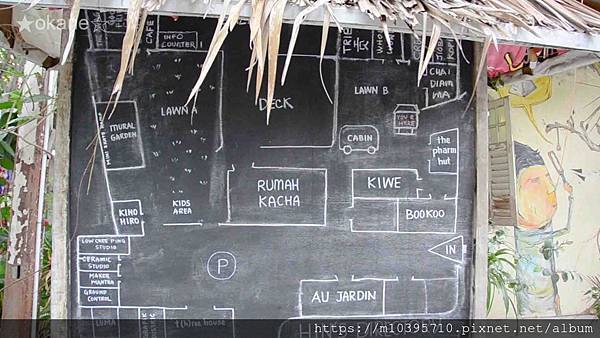 ★okane
CAFE
INFO
COUNTER
LAWN A
DECK
LAWN B
YOU R
HERE
CHAI
DIAM
MURAL
GARDEN
CABIN
the
pharm
hut
KINO
HIRO
KIDS
AREA
RUMAH
KACHA
KIWE
BOOKOO
LOW CREE PING
STUDIO
CERAMIC
STUDIO
MAKER
MANTRA
GROUND
CONTROL
P
IN
AU JARDIN
LUMA
house
HIN'S DIRECTORY
https://m10395710.pixnet.net/album